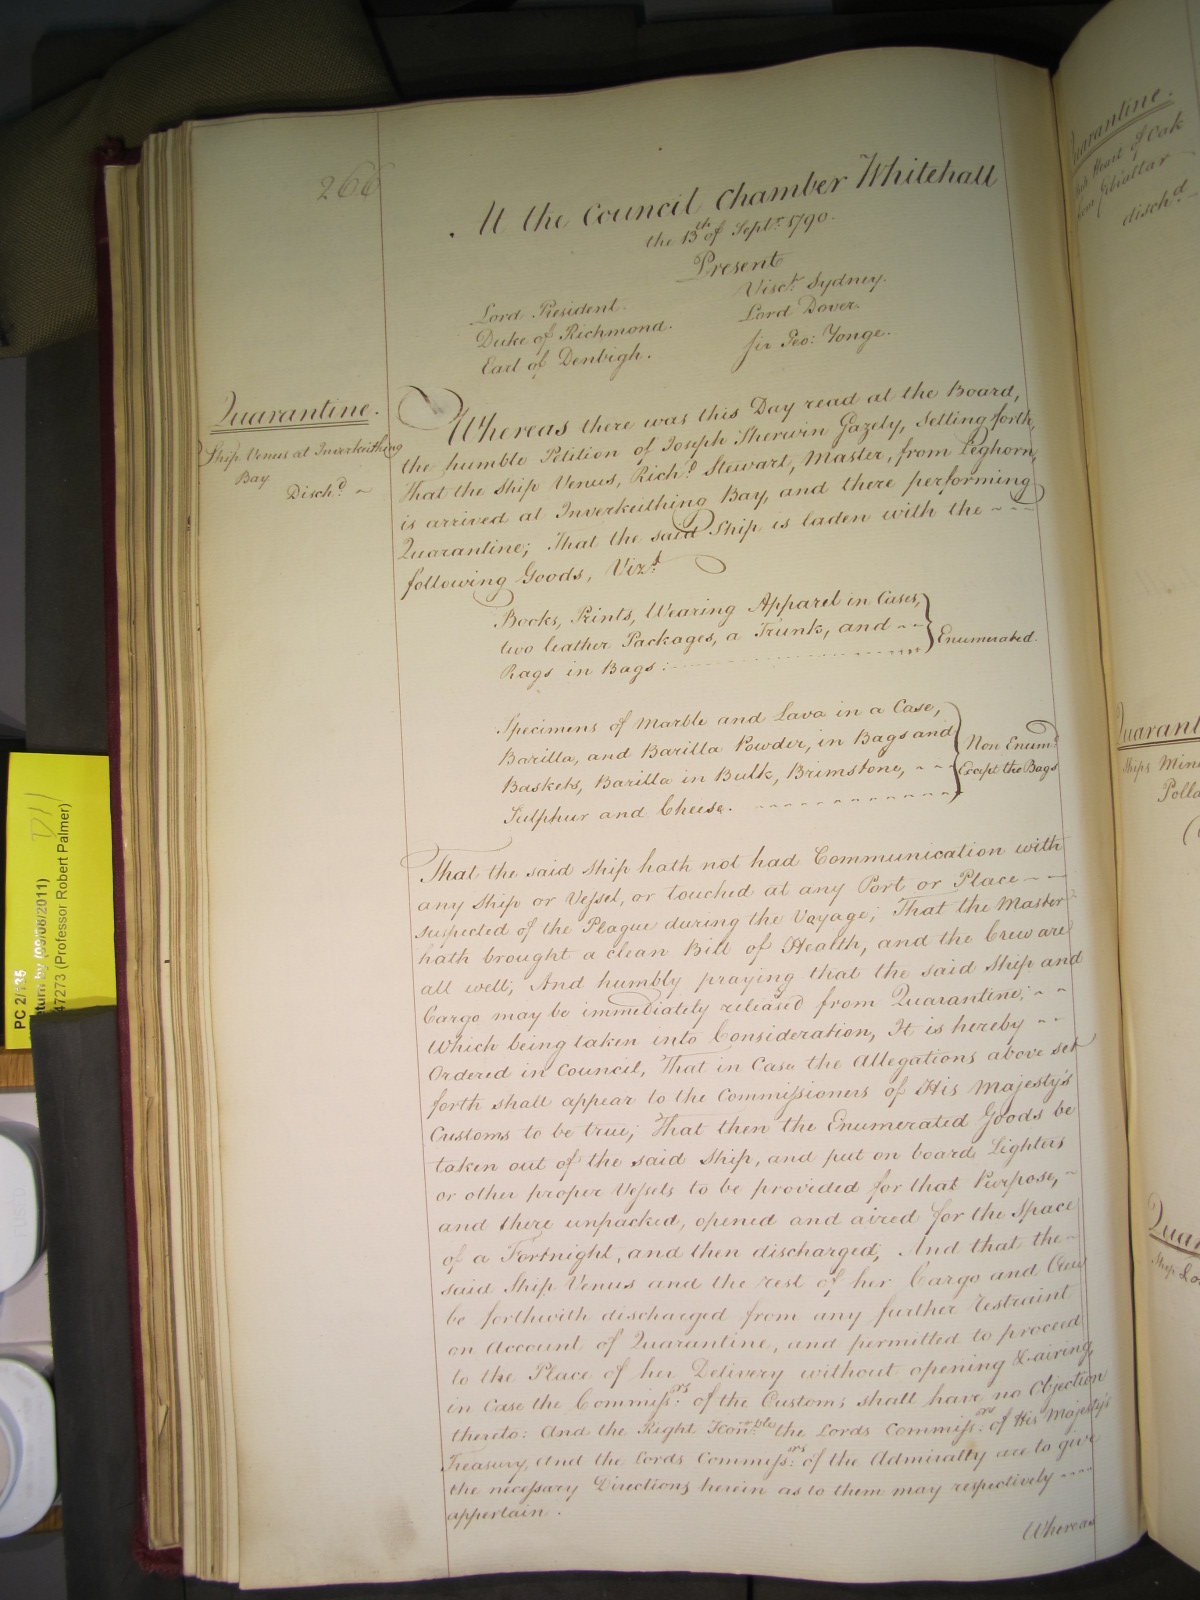 266
At the Council Chamber Whitehall
the 13th of Septr. 1790.
Present
Lord President.
Duke of Richmond.
Earl of Denbigh.
Visct. Sydney.
Lord Dover
Sir Geo: Yonge.
Quarantine.
Ship Venus at Inverkeithing
Bay
Dischd. ~
Whereas there was this Day read at the Board,
the humble Petition of Joseph Sherwin Gazely, Setting forth,
That the Ship Venus, Richd. Stewart, Master, from Leghorn,
is arrived at Inverkeithing Bay, and there performing
Quarantine; That the said Ship is laden with the ~ ~ ~
following Goods, Vizt.
Books, Prints, Wearing Apparel in Cases,
two leather Packages, a Trunk, and ~ ~
Rags in Bags:
Enumerated.
Specimens of Marble and Lava in a Case,
Barilla, and Barilla Powder, in Bags and
Baskets, Barilla in Bulk, Brimstone, ~ ~ ~
Sulphur and Cheese.
Non Enumd.
Except the Bags
That the said Ship hath not had Communication with
any Ship or Vessel, or touched at any Port or Place ~ ~
suspected of the Plague during the Voyage; That the Master
hath brought a clean Bill of Health, and the Crew are
all well; And humbly praying that the said Ship and
Cargo may be immediately released from Quarantine; ~ ~
Which being taken into Consideration, It is hereby ~ ~
Ordered in Council, That in Case the Allegations above set
forth shall appear to the Commissioners of His Majesty's
Customs to be true; That then the Enumerated Goods be
taken out of the said Ship, and put on board Lighters
or other proper Vessels to be provided for that Purpose, ~
and there unpacked, opened and aired for the Space
of a Fortnight, and then discharged; And that the ~
said Ship Venus and the rest of her Cargo and Crew
be forthwith discharged from any further restraint
on Account of Quarantine, and permitted to proceed
to the Place of her Delivery without opening & airing,
in Case the Commissrs. of the Customs shall have no Objection
thereto: And the Right Honble. the Lords Commissrs. of His Majesty's
Treasury, And the Lords Commissrs. of the Admiralty are to give
the necessary Directions herein as to them may respectively ~ ~ ~ ~
appertain.
Whereas
PC 2/135
(09/08/2011)
47273 (Professor Robert Palmer)
Quarantine.
Heart of Oak
Gibraltar
dischd. ~
Quarant
Ships Min
Polla
Quar
Ship Lo